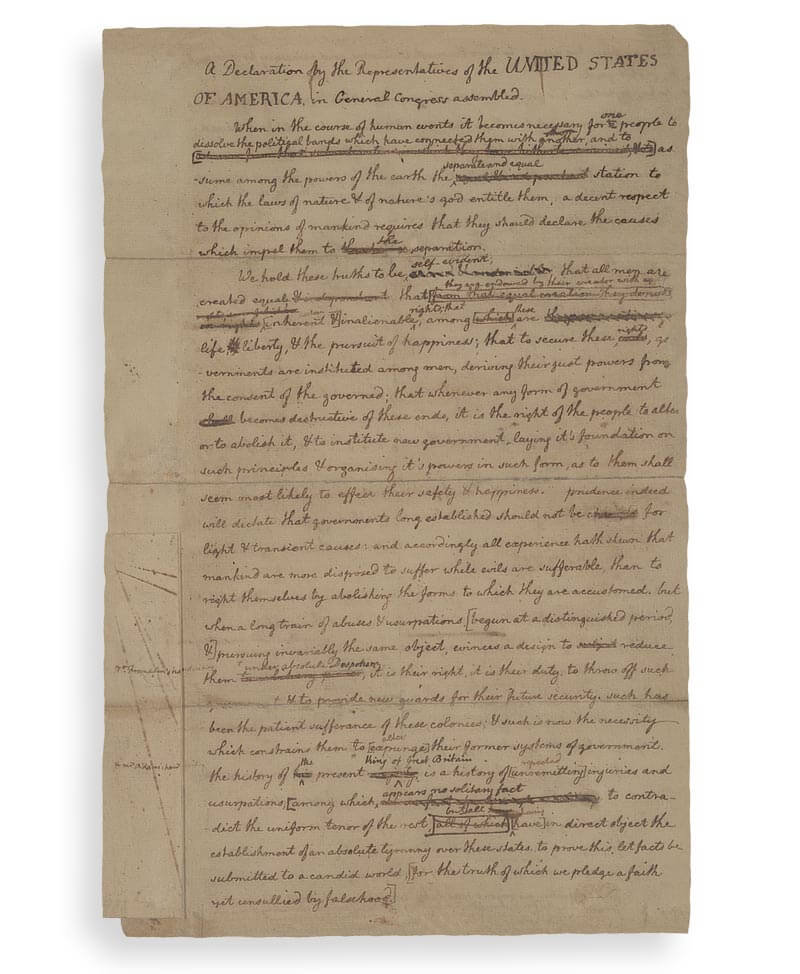 A Declaration by the Representatives of the UNITED STATES
OF AMERICA, in General Congress assembled.
When in the course of human events it becomes necessary for one people to
dissolve the political bands which have connected them with another, and to as
separate and equal
-sume among the powers of the earth the station to
which the laws of nature & of nature's god entitle them, a decent respect
to the opinions of mankind requires that they should declare the causes
which impel them to the separation.
self-evident;
We hold these truths to be that all men are
they are endowed by their creator with
created equal & independent that from that equal creation they derive
rights; that
inherent & inalienable, among which these are
life & liberty, & the pursuit of happiness; that to secure these rights, go
-vernments are instituted among men, deriving their just powers from
the consent of the governed; that whenever any form of government
shall becomes destructive of these ends, it is the right of the people to alter
or to abolish it, & to institute new government, laying it's foundation on
such principles & organising it's powers in such form, as to them shall
seem most likely to effect their safety & happiness. prudence indeed
will dictate that governments long established should not be changed for
light & transient causes: and accordingly all experience hath shewn that
mankind are more disposed to suffer while evils are sufferable, than to
right themselves by abolishing the forms to which they are accustomed. but
when a long train of abuses & usurpations, [begun at a distinguished period,
&] pursuing invariably the same object, evinces a design to reduce
under absolute Despotism
them it is their right, it is their duty, to throw off such
& to provide new guards for their future security. such has
been the patient sufferance of these colonies; & such is now the necessity
alter
which constrains them to [expunge] their former systems of government.
the King of Great Britain repeated
the history of present is a history of [unremitting] injuries and
appears no solitary fact
usurpations, [among which, to contra-
but all
-dict the uniform tenor of the rest, [all of which] [have] in direct object the
establishment of an absolute tyranny over these states. to prove this, let facts be
submitted to a candid world, [for the truth of which we pledge a faith
yet unsullied by falsehood.]